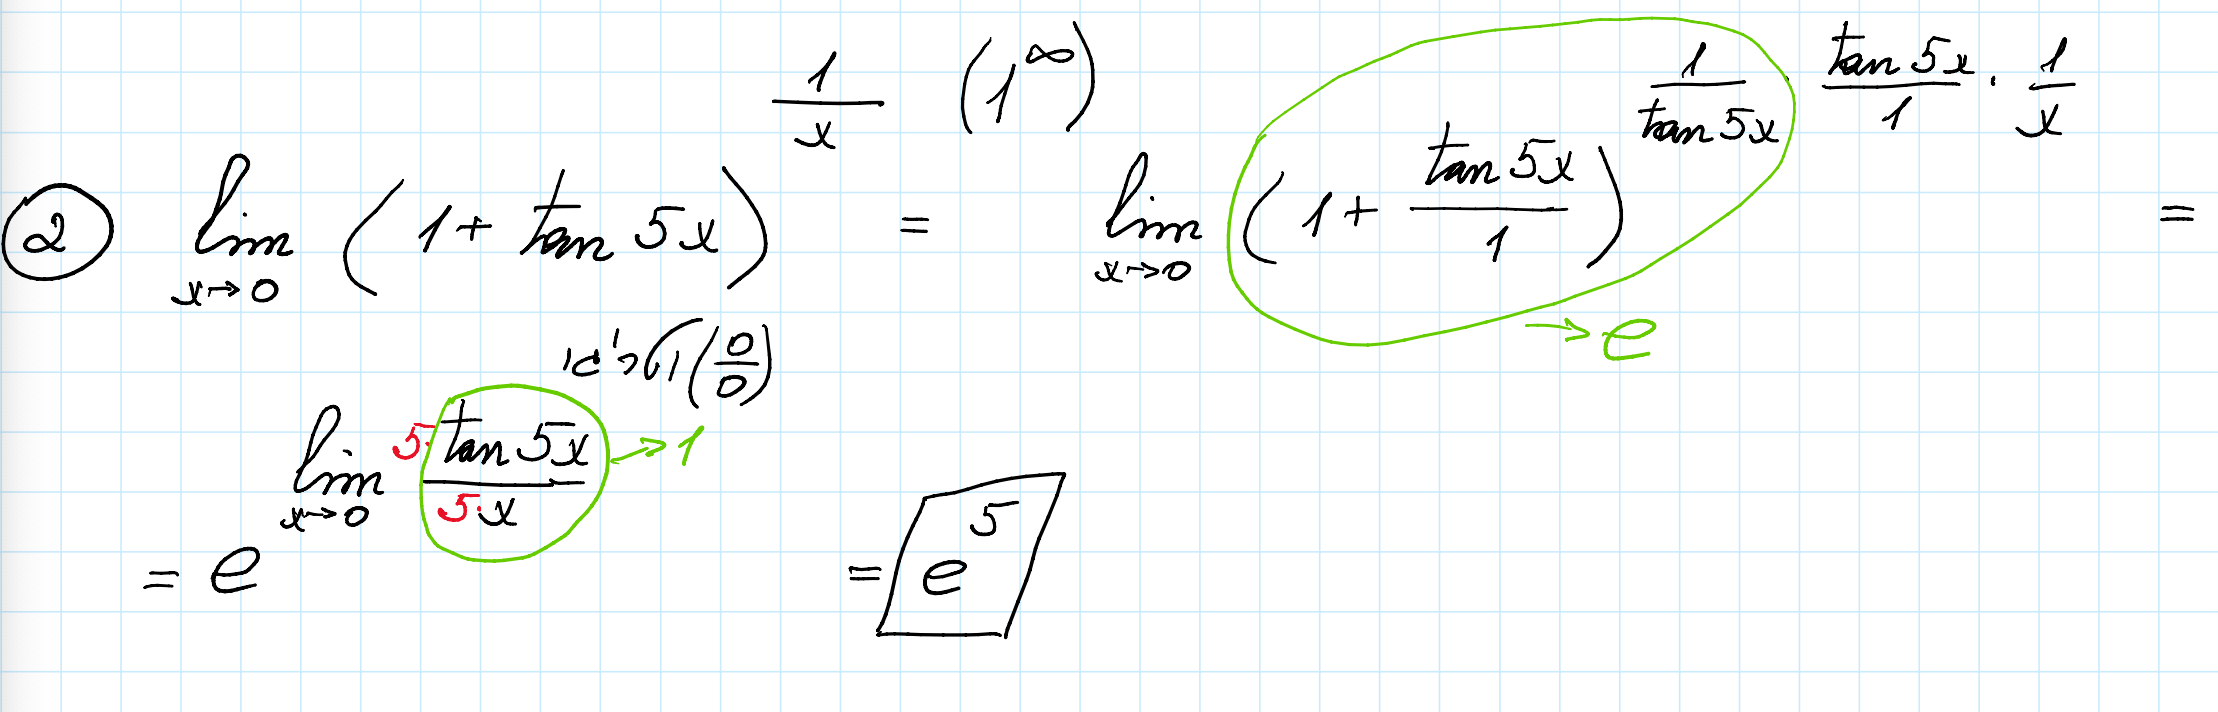 ② lim_{x→0} (1 + tan 5x)^{1/x} (1^∞) = lim_{x→0} (1 + tan 5x / 1)^{1/tan 5x · tan 5x / 1 · 1/x} =
→ e
(0/0)
= e^{lim_{x→0} 5· tan 5x / 5·x} → 1 = e^5